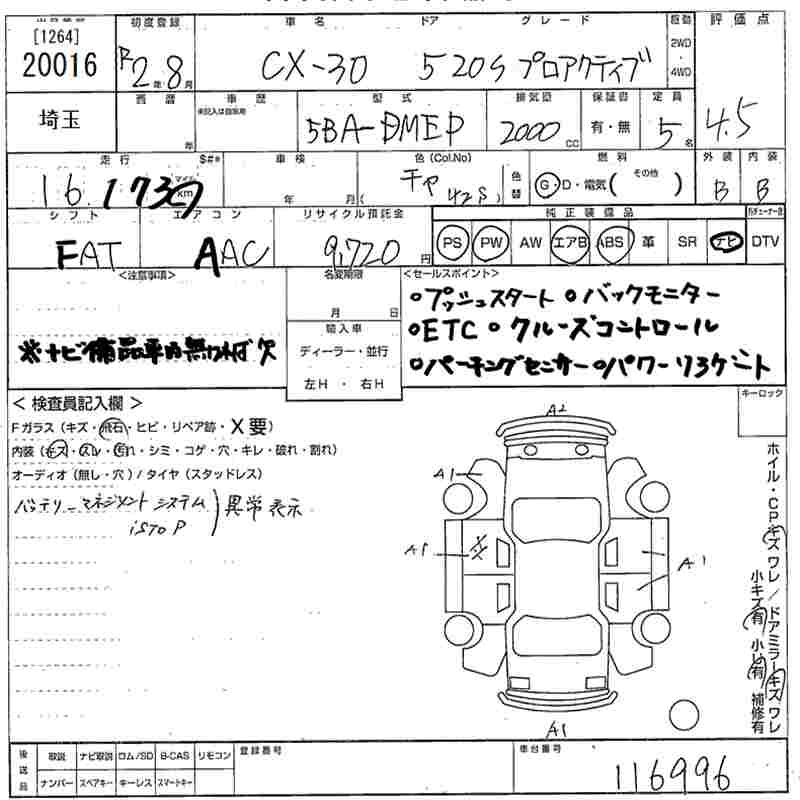 [1264]
20016
初度登録
R2年8月
車名
CX-30
ドア
5
グレード
20S プロアクティブ
駆動
2WD
4WD
評価点
4.5
埼玉
西暦
年
車歴
未記入は自家用
型式
5BA-DMEP
排気量
2000 cc
保証書
有・無
定員
5名
走行
16,173
マイル
km
$#*
車検
年 月(
色(Col.No)
42S)
色替
燃料
G・D・電気( その他 )
外装
B
内装
B
シフト
FAT
エアコン
AAC
リサイクル預託金
9,720円
純正装備品
PS PW AW エアB ABS 革 SR ナビ DTV
<注意事項>
※ナビ備品車内無ければ欠
名変期限
月 日
輸入車
ディーラー・並行
左H・右H
<セールスポイント>
○プッシュスタート ○バックモニター
○ETC ○クルーズコントロール
○パーキングセンサー ○パワーリヤゲート
キーロック
<検査員記入欄>
Fガラス(キズ・飛石・ヒビ・リペア跡・X要)
内装(キズ・スレ・汚れ・シミ・コゲ・穴・キレ・破れ・割れ)
オーディオ(無し・穴)/タイヤ(スタッドレス)
バッテリーマネジメントシステム
iSTOP
異常表示
A2
A1
A1
X
A1
A1
ホイル・CPキズ ワレ/ドアミラーキズ ワレ
小キズ有 小凹有 補修有
後送品
取説 ナビ取説 ロム/SD B-CAS リモコン
ナンバー スペアキー キーレス スマートキー
登録番号
車台番号
116996